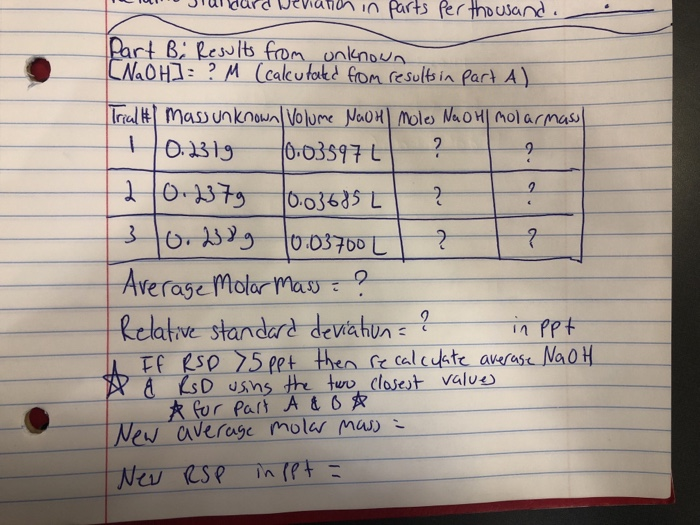 Standard Deviation in parts per thousand.
Part B: Results from unknown
[NaOH] = ? M (calculated from results in Part A)
Trial # Mass unknown Volume NaOH Moles NaOH molar mass
1 0.231g 0.03597 L ? ?
2 0.237g 0.03685 L ? ?
3 0.238g 0.03700 L ? ?
Average Molar Mass = ?
Relative standard deviation = ? in ppt
☆ If RSD >5ppt then recalculate average NaOH
& RSD using the two closest values
☆ for part A & B ☆
New average molar mass =
New RSD in ppt =